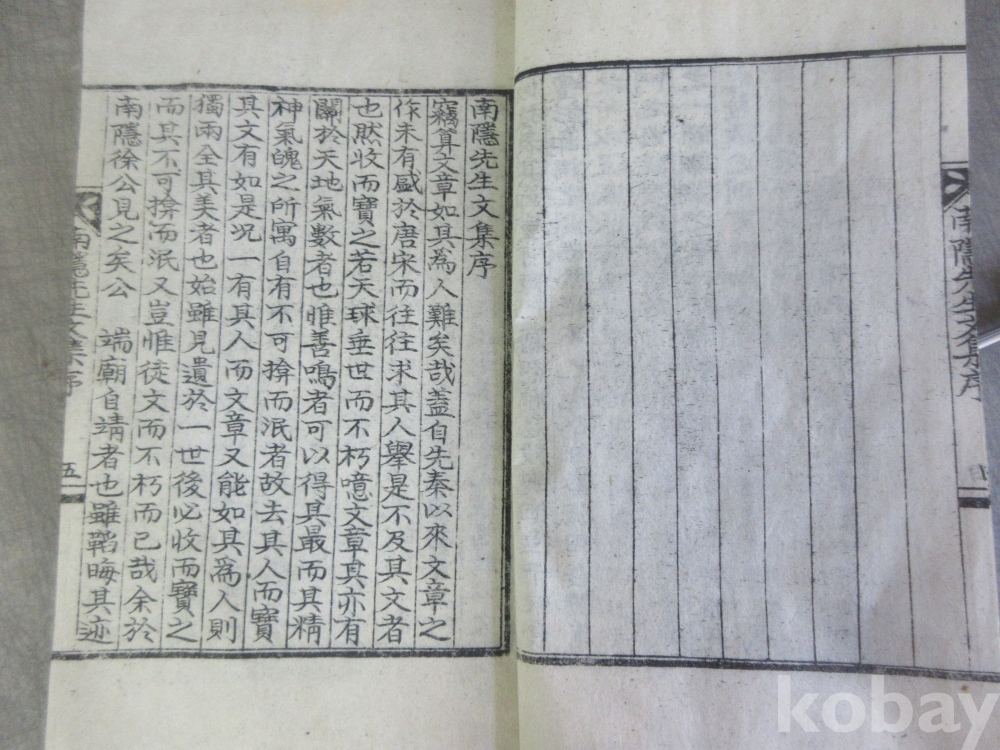 南隱先生文集序
南隱先生文集序
竊算文章如其為人難矣哉蓋自先秦以來文章之
作未有盛於唐宋而往往求其人擧是不及其文者
也然收而寶之若天球垂世而不朽噫文章其亦有
關於天地氣數者也惟善鳴者可以得其最而其精
神氣魄之所寓自有不可揜而泯者故去其人而寶
其文有如是況一有其人而文章又能如其爲人則
獨兩全其美者也始雖見遺於一世後必收而寶之
而其不可揜而泯又豈惟徒文而不朽而已哉余於
南隱徐公見之矣公 端廟自靖者也雖韜晦其迹
南隱先生文集序
五
kobay